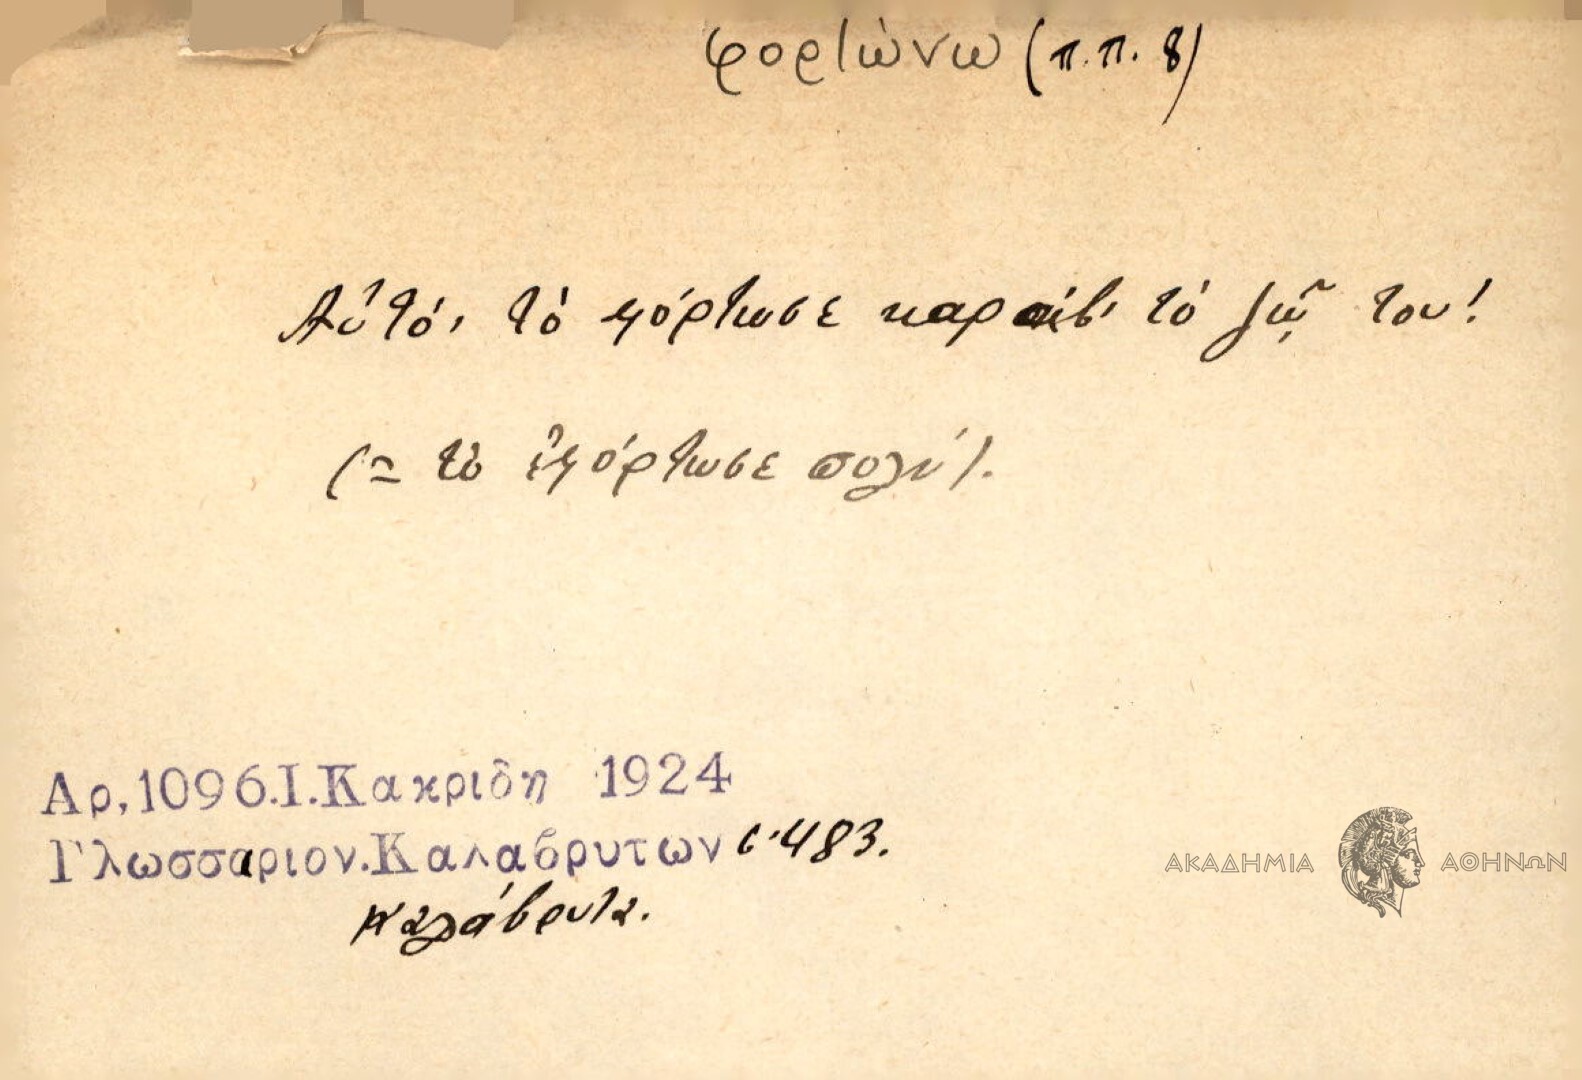 φορτώνω (π.π. 8)
Αὐτό, τὸ φόρτωσε καράβ' τὸ ζῷ του!
(= τὸ ἐφόρτωσε πολύ).
Αρ,1096.Ι.Κακριδη 1924
Γλωσσαριον.Καλαβρυτων σ. 483.
Καλάβρυτα.
ΑΚΑΔΗΜΙΑ ΑΘΗΝΩΝ